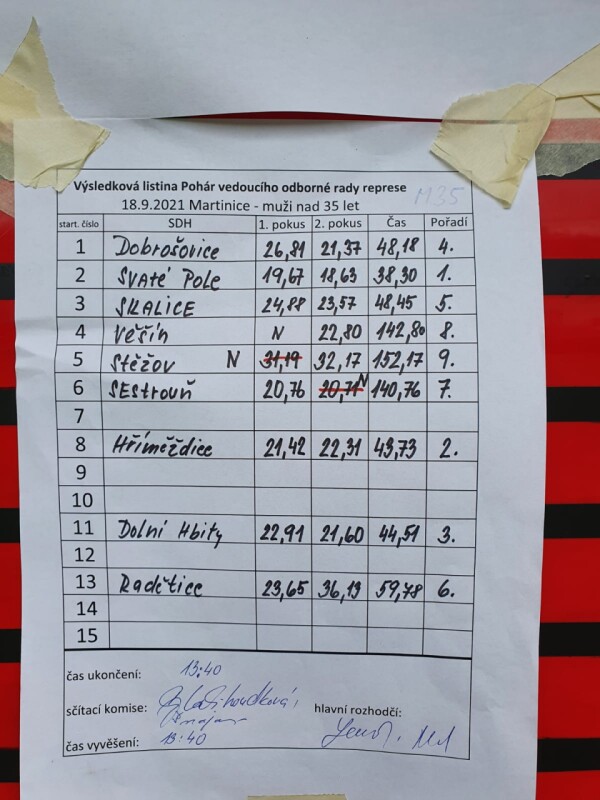 Výsledková listina Pohár vedoucího odborné rady represe M35
18.9.2021 Martinice - muži nad 35 let
start. číslo SDH 1. pokus 2. pokus Čas Pořadí
1 Dobrošovice 26,81 21,37 48,18 4.
2 SVATÉ POLE 19,67 18,63 38,30 1.
3 SKALICE 24,88 23,57 48,45 5.
4 Věšín N 22,80 142,80 8.
5 Stěžov N 31,19 32,17 152,17 9.
6 SEstrouň 20,76 20,71 N 140,76 7.
7
8 Hříměždice 21,42 22,31 43,73 2.
9
10
11 Dolní Hbity 22,91 21,60 44,51 3.
12
13 Radětice 23,65 36,13 59,78 6.
14
15
čas ukončení: 13:40
sčítací komise:
hlavní rozhodčí:
čas vyvěšení: 13:40